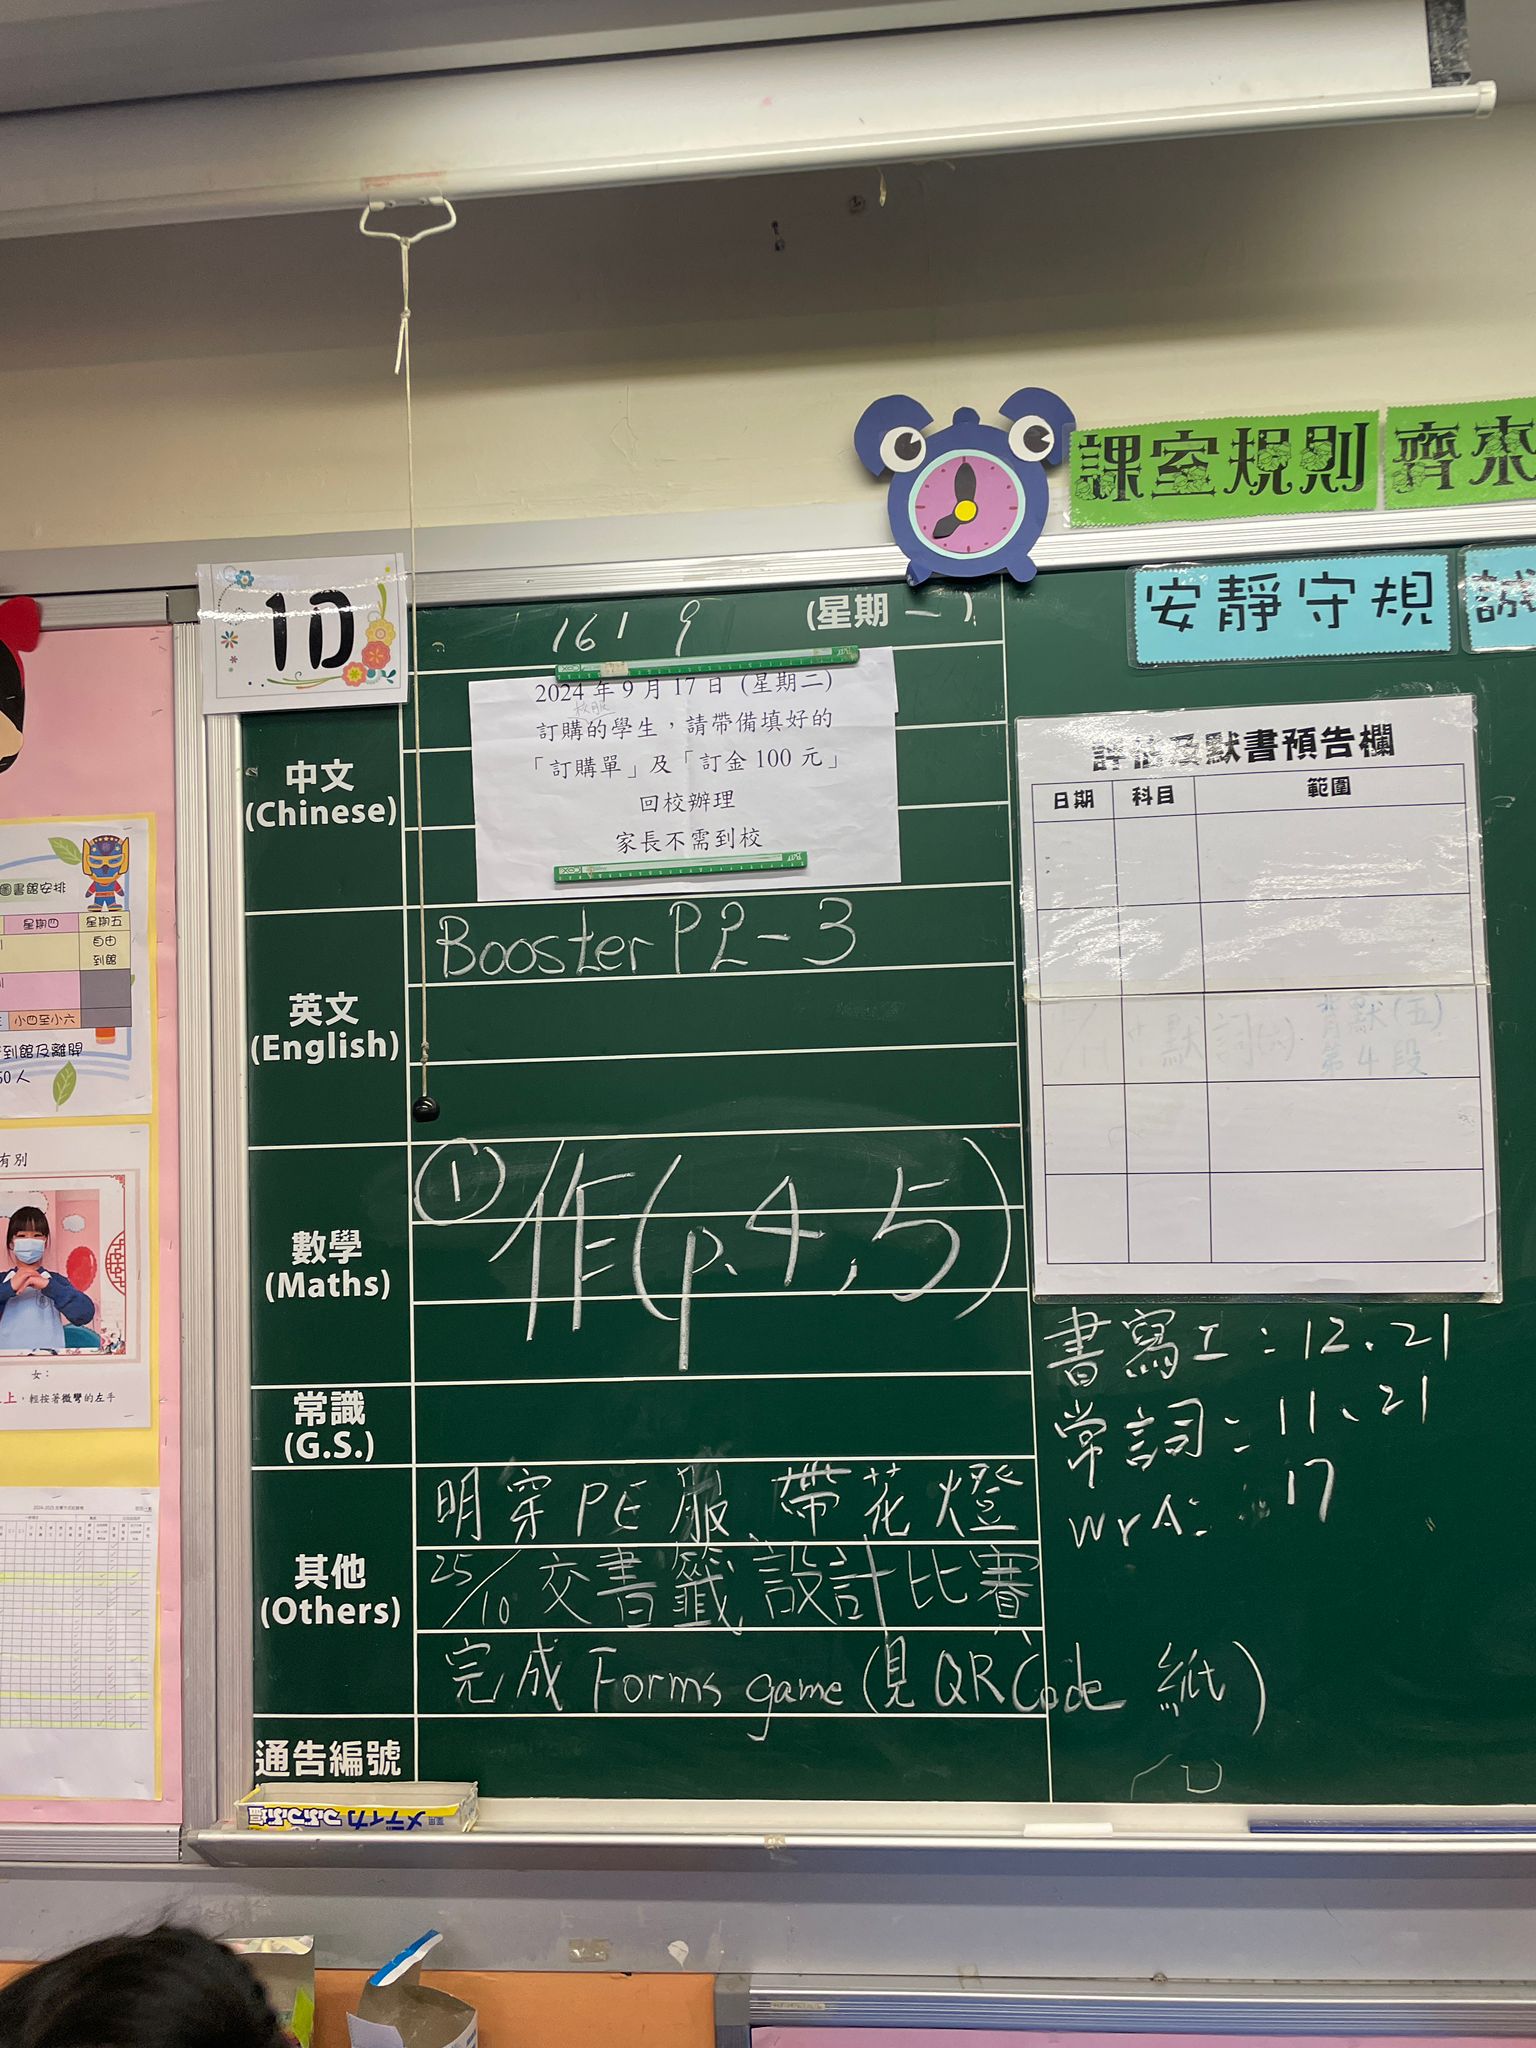 課室規則 齊來
安靜守規 誠
1D
16 / 9 (星期 一 )
2024 年 9 月 17 日 (星期二)
校服
訂購的學生，請帶備填好的
「訂購單」及「訂金 100 元」
回校辦理
家長不需到校
中文
(Chinese)
英文
(English)
Booster P2-3
數學
(Maths)
① 作(p.4,5)
常識
(G.S.)
其他
(Others)
明穿PE服 帶花燈
25/10 交書籤設計比賽
完成 Forms game (見 QR Code 紙)
通告編號
評估及默書預告欄
日期 科目 範圍
背默(五)
第4段
書寫工：12、21
常詞：11、21
WrA： 17
圖書館安排
星期四 星期五
自由
到館
小四至小六
到館及離開
50 人
有別
女：
上，輕按著微彎的左手
メディカ つぶつぶ塩